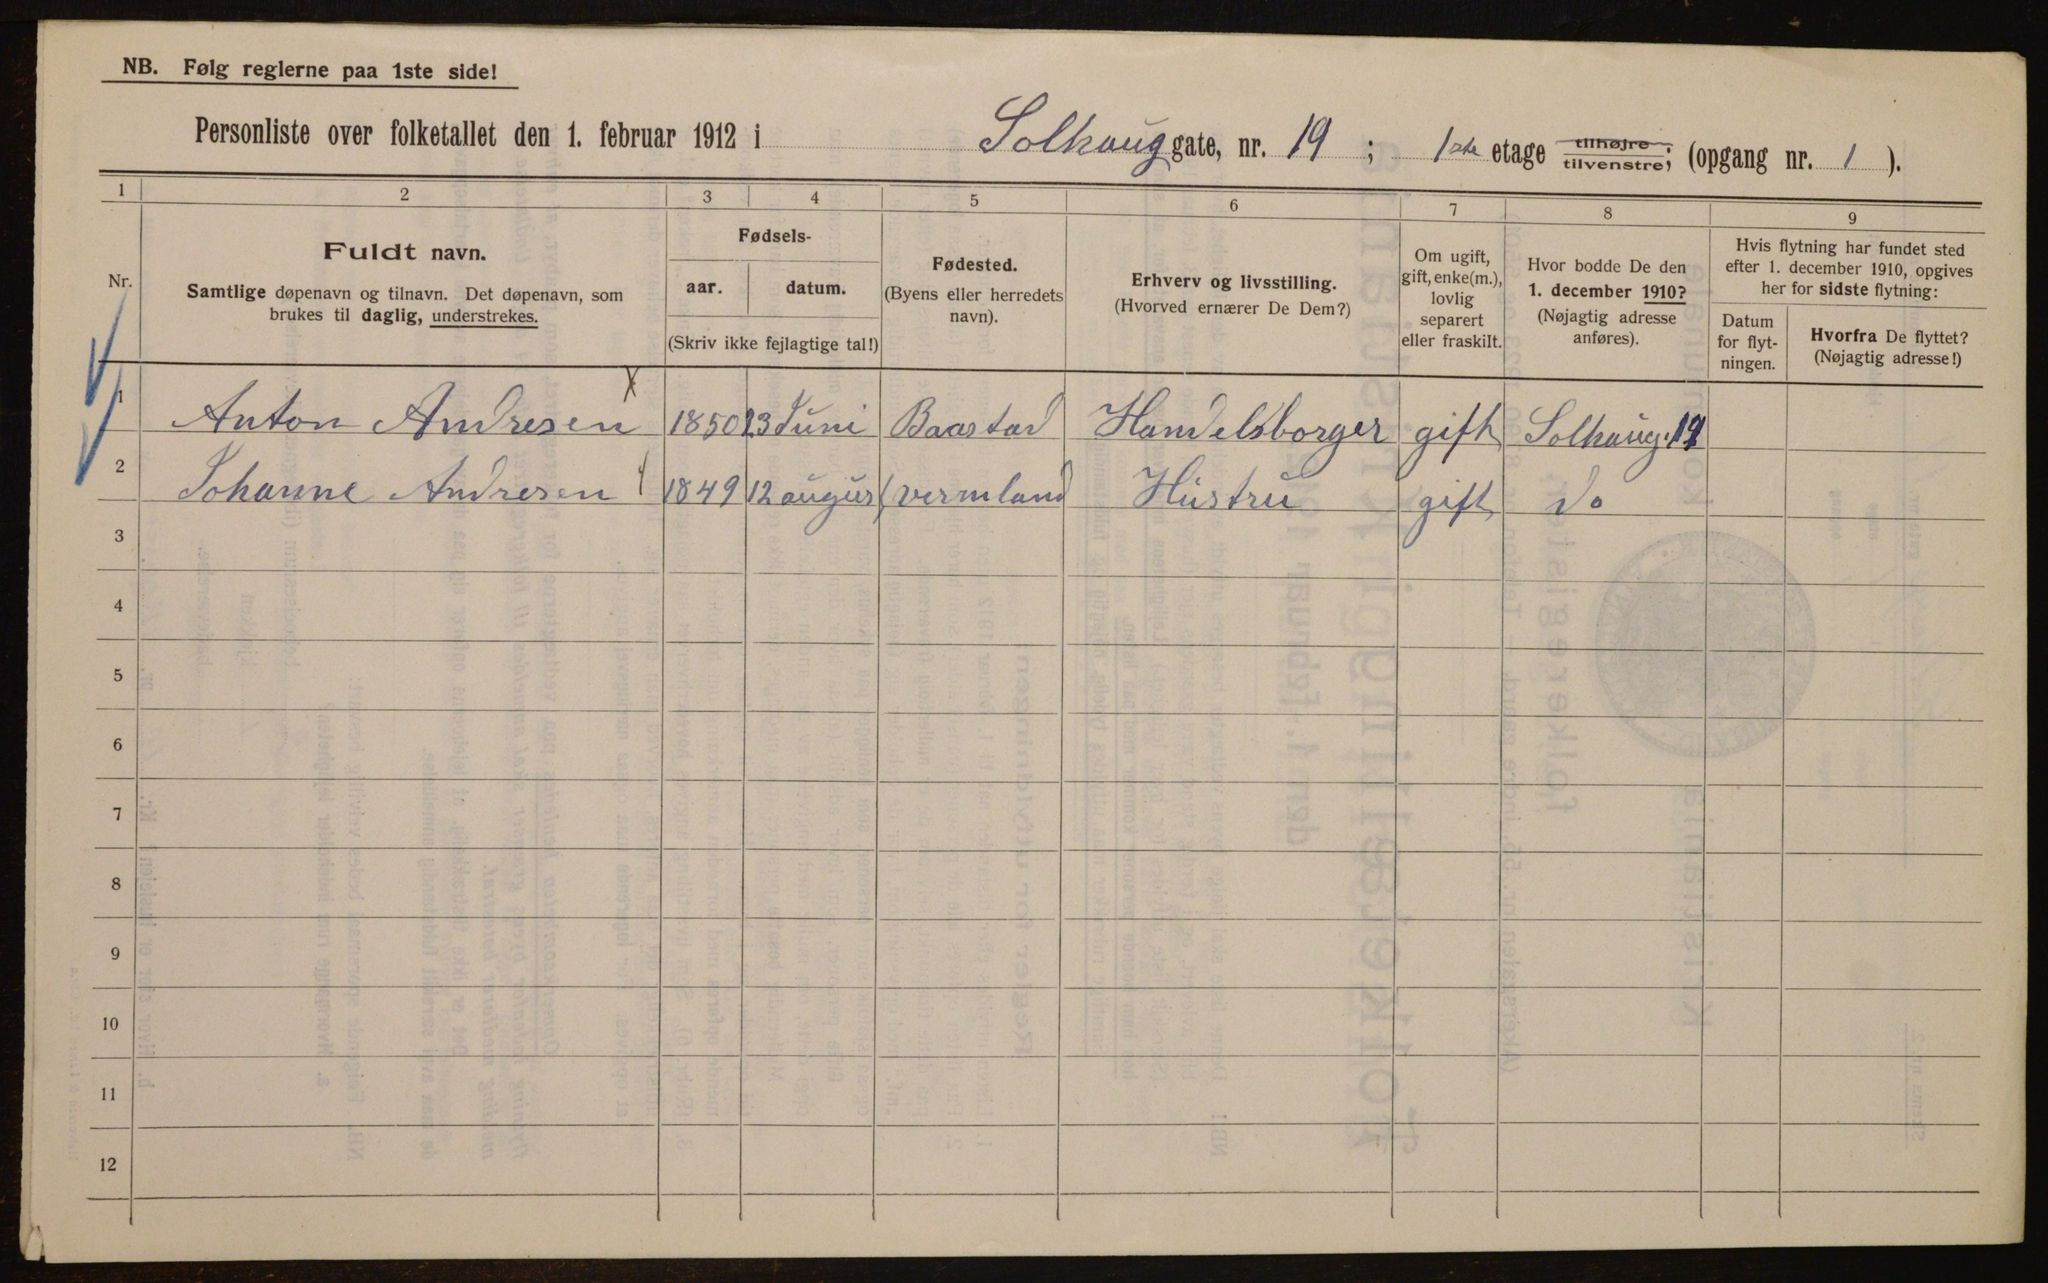 NB. Følg reglerne paa 1ste side!
Personliste over folketallet den 1. februar 1912 i Solhaug gate, nr. 19 ; 1ste etage tilhøjre tilvenstre; (opgang nr. 1 ).
1 2 3 4 5 6 7 8 9
Nr.
Fuldt navn.
Samtlige døpenavn og tilnavn. Det døpenavn, som
brukes til daglig, understrekes.
Fødsels-
aar. datum.
(Skriv ikke fejlagtige tal!)
Fødested.
(Byens eller herredets
navn).
Erhverv og livsstilling.
(Hvorved ernærer De Dem?)
Om ugift,
gift, enke(m.),
lovlig
separert
eller fraskilt.
Hvor bodde De den
1. december 1910?
(Nøjagtig adresse
anføres).
Hvis flytning har fundet sted
efter 1. december 1910, opgives
her for sidste flytning:
Datum
for flyt-
ningen.
Hvorfra De flyttet?
(Nøjagtig adresse!)
1 Anton Andresen 1850 23 Juni Baastad Handelsborger gift Solhaug. 19
2 Johanne Andresen 1849 12 august vermland Hustru gift do
3
4
5
6
7
8
9
10
11
12